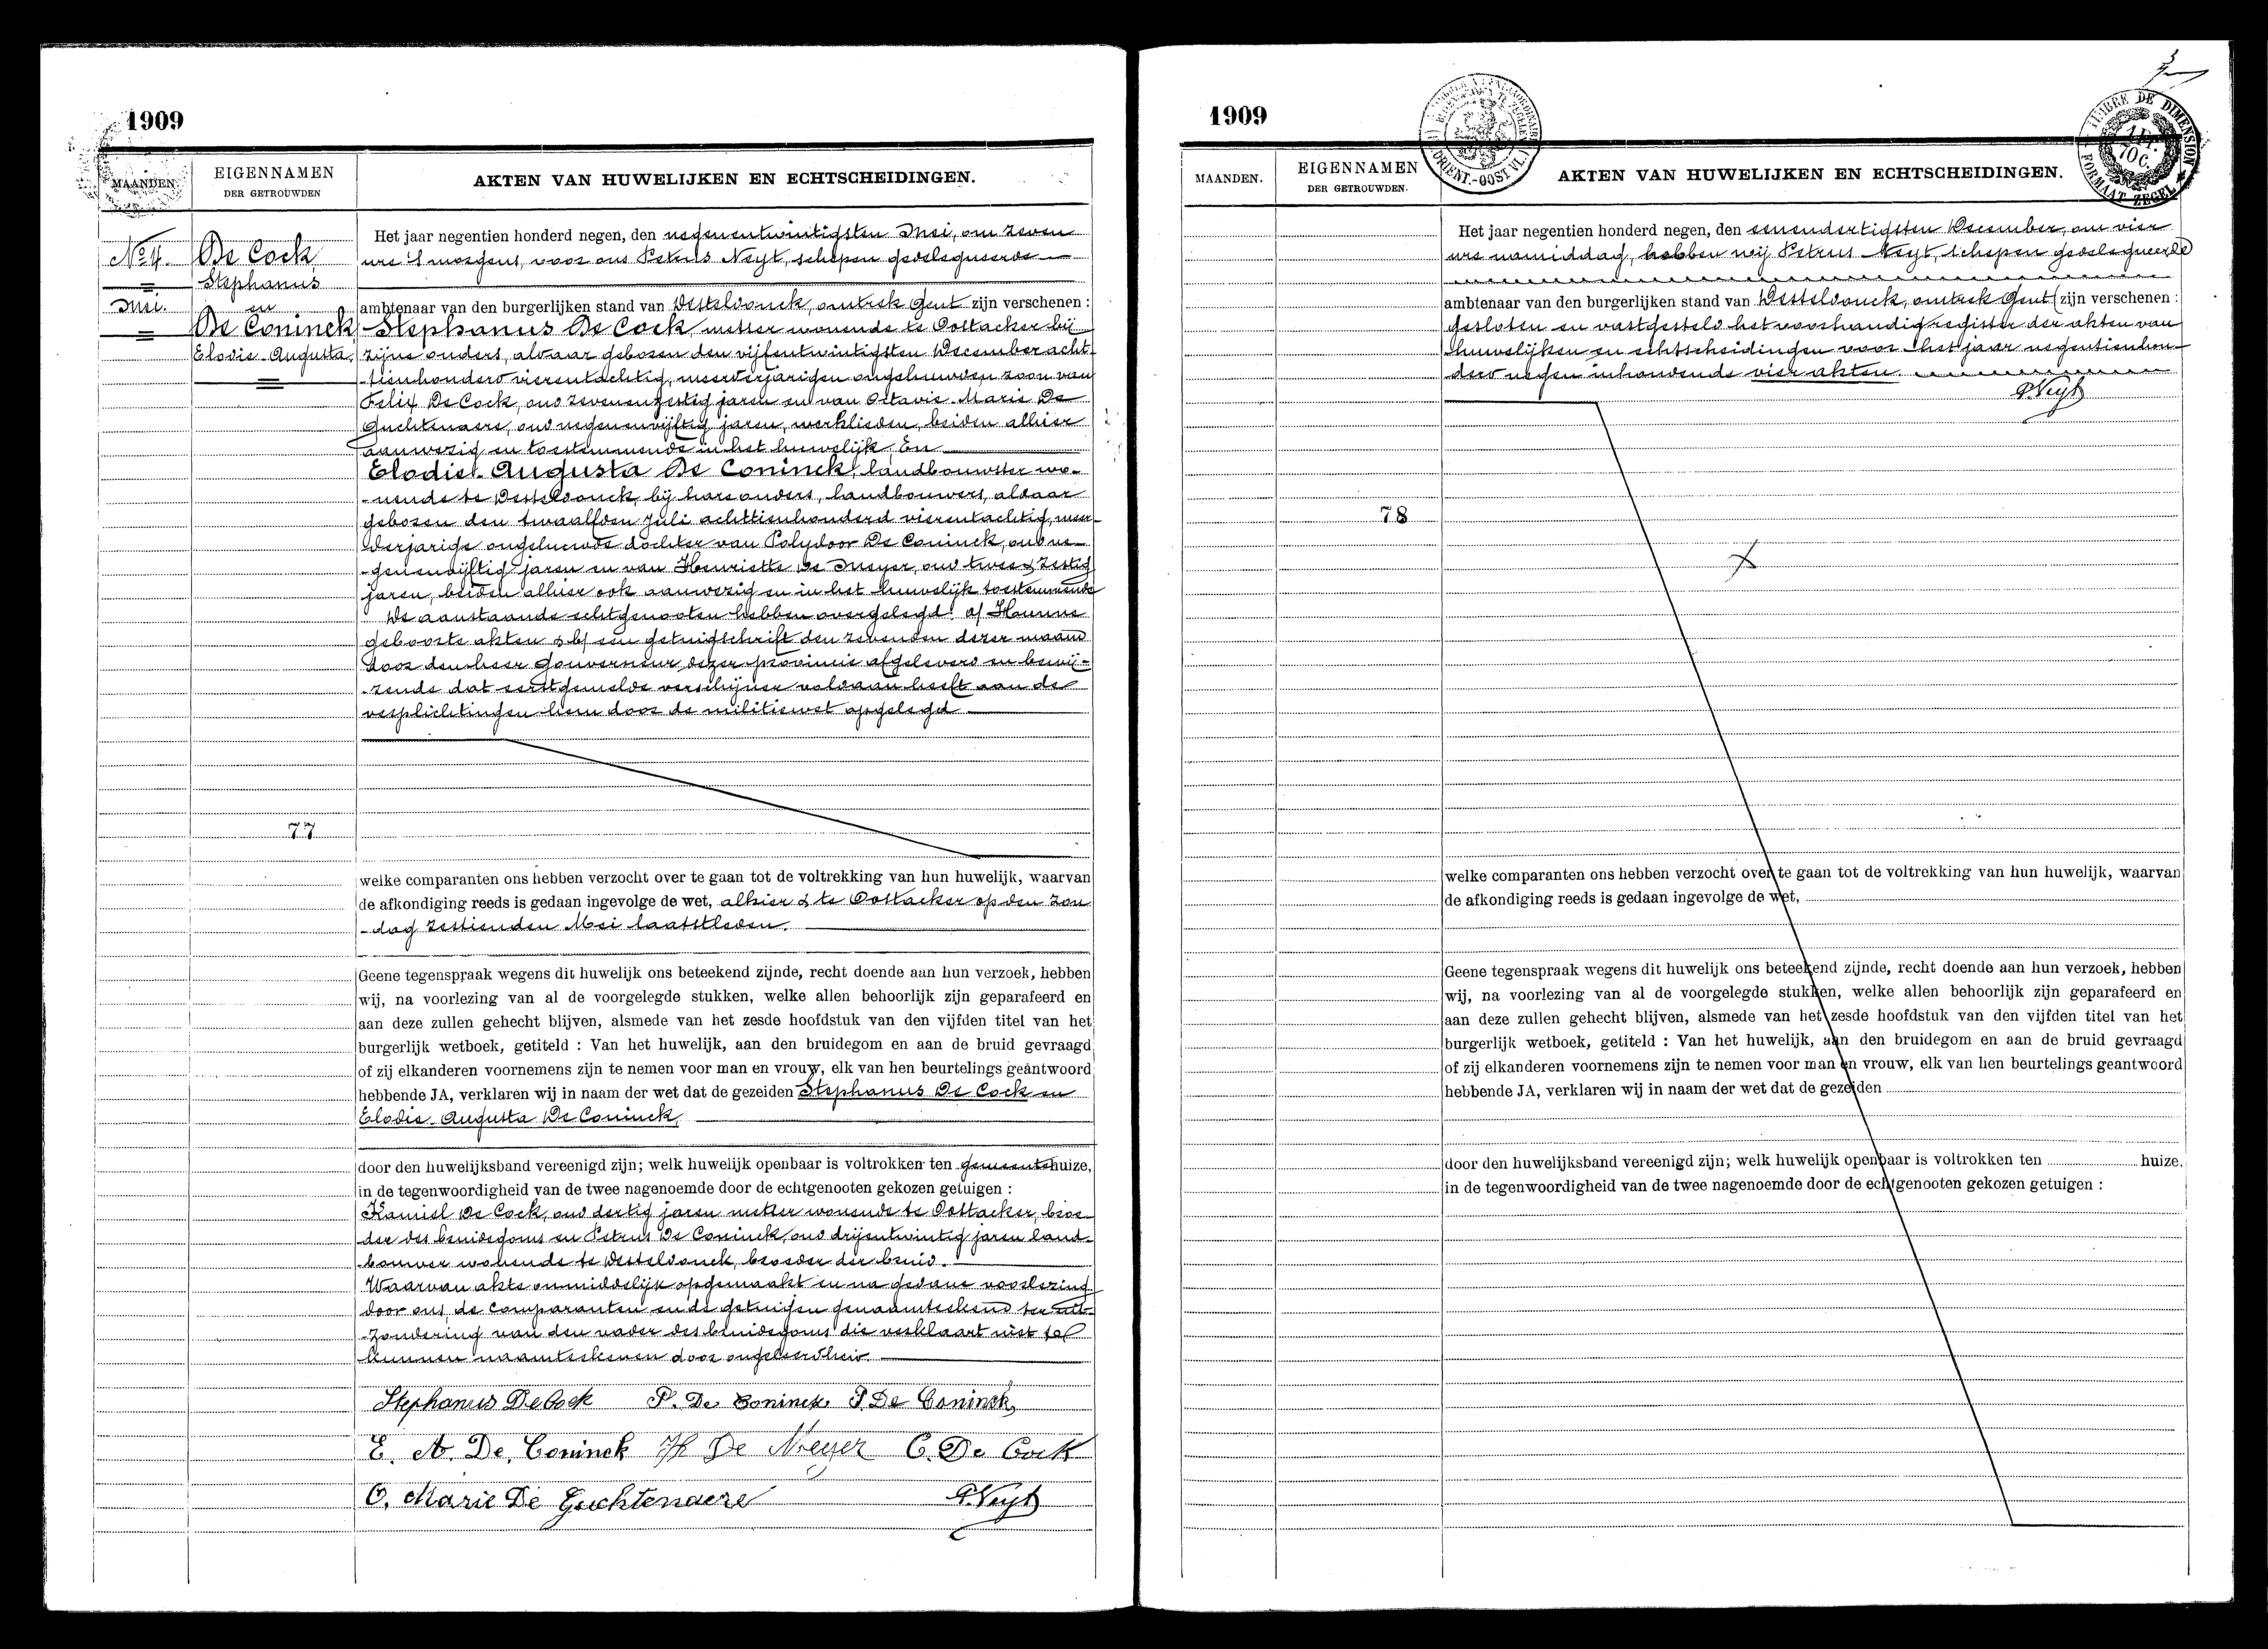 1909
MAANDEN
EIGENNAMEN
DER GETROUWDEN
AKTEN VAN HUWELIJKEN EN ECHTSCHEIDINGEN.
No 4.
Mei.
De Cock
Stephanus
en
De Coninck
Elodie-Augusta.
77
Het jaar negentien honderd negen, den negenentwintigsten Mei, om zeven
ure 's morgens, voor ons Petrus Neyt, schepen gedelegueerde
ambtenaar van den burgerlijken stand van Desteldonck, omtrek Gent zijn verschenen :
Stephanus De Cock, metser wonende te Oostacker bij
zijne ouders, aldaar geboren den vijfentwintigsten December acht-
tienhonderd vierentachtig, meerderjarigen ongehuwden zoon van
Felix De Cock, oud zevenenzestig jaren en van Octavie Marie De
Guchtenaere, oud negenenvijftig jaren, werklieden, beiden alhier
aanwezig en toestemmende in het huwelijk. En
Elodie-Augusta De Coninck, landbouwster wo-
-nende te Desteldonck, bij hare ouders, landbouwers, aldaar
geboren den twaalfden Juli achttienhonderd vierentachtig, meer-
derjarige ongehuwde dochter van Polydoor De Coninck, oud ne-
-genenvijftig jaren en van Henriette De Meyer, oud twee & zestig
jaren, beiden alhier ook aanwezig en in het huwelijk toestemmende
De aanstaande echtgenooten hebben overgelegd: a/ Hunne
geboorte akten & b/ een getuigschrift den zevenden dezer maand
door den heer Gouverneur dezer provincie afgeleverd en bewij-
-zende dat eerstgemelde verschijner voldaan heeft aan de
verplichtingen hem door de militiewet opgelegd
welke comparanten ons hebben verzocht over te gaan tot de voltrekking van hun huwelijk, waarvan
de afkondiging reeds is gedaan ingevolge de wet, alhier & te Oostacker op den Zon-
-dag zestienden Mei laatstleden.
Geene tegenspraak wegens dit huwelijk ons beteekend zijnde, recht doende aan hun verzoek, hebben
wij, na voorlezing van al de voorgelegde stukken, welke allen behoorlijk zijn geparafeerd en
aan deze zullen gehecht blijven, alsmede van het zesde hoofdstuk van den vijfden titel van het
burgerlijk wetboek, getiteld : Van het huwelijk, aan den bruidegom en aan de bruid gevraagd
of zij elkanderen voornemens zijn te nemen voor man en vrouw, elk van hen beurtelings geantwoord
hebbende JA, verklaren wij in naam der wet dat de gezeiden Stephanus De Cock en
Elodie-Augusta De Coninck,
door den huwelijksband vereenigd zijn; welk huwelijk openbaar is voltrokken ten gemeentehuize,
in de tegenwoordigheid van de twee nagenoemde door de echtgenooten gekozen getuigen :
Kamiel De Cock, oud dertig jaren metser wonende te Oostacker, broe-
der des bruidegoms en Petrus De Coninck, oud drijentwintig jaren land-
bouwer wonende te Desteldonck, broeder der bruid.
Waarvan akte onmiddelijk opgemaakt en na gedane voorlezing
door ons, de comparanten en de getuigen genaamteekend ter uit-
-zondering van den vader des bruidegoms die verklaart niet te
kunnen naamteekenen door ongeleerdheid.
Stephanus De Cock P. De Coninck P. De Coninck
E. A. De Coninck H De Meyer C. De Cock
O. Marie De Guchtenaere P. Neyt
1909
TIMBRE DE DIMENSION
1 FR. 70 C.
FORMAAT ZEGEL
MAANDEN.
EIGENNAMEN
DER GETROUWDEN.
AKTEN VAN HUWELIJKEN EN ECHTSCHEIDINGEN.
78
Het jaar negentien honderd negen, den eenendertigsten December, om vier
ure namiddag, hebben wij Petrus Neyt, schepen gedelegueerde
ambtenaar van den burgerlijken stand van Desteldonck, omtrek Gent zijn verschenen :
gesloten en vastgesteld het voorhandig register der akten van
huwelijken en echtscheidingen voor het jaar negentienhon-
derd negen inhoudende vier akten.
P. Neyt
welke comparanten ons hebben verzocht over te gaan tot de voltrekking van hun huwelijk, waarvan
de afkondiging reeds is gedaan ingevolge de wet,
Geene tegenspraak wegens dit huwelijk ons beteekend zijnde, recht doende aan hun verzoek, hebben
wij, na voorlezing van al de voorgelegde stukken, welke allen behoorlijk zijn geparafeerd en
aan deze zullen gehecht blijven, alsmede van het zesde hoofdstuk van den vijfden titel van het
burgerlijk wetboek, getiteld : Van het huwelijk, aan den bruidegom en aan de bruid gevraagd
of zij elkanderen voornemens zijn te nemen voor man en vrouw, elk van hen beurtelings geantwoord
hebbende JA, verklaren wij in naam der wet dat de gezeiden
door den huwelijksband vereenigd zijn; welk huwelijk openbaar is voltrokken ten huize.
in de tegenwoordigheid van de twee nagenoemde door de echtgenooten gekozen getuigen :